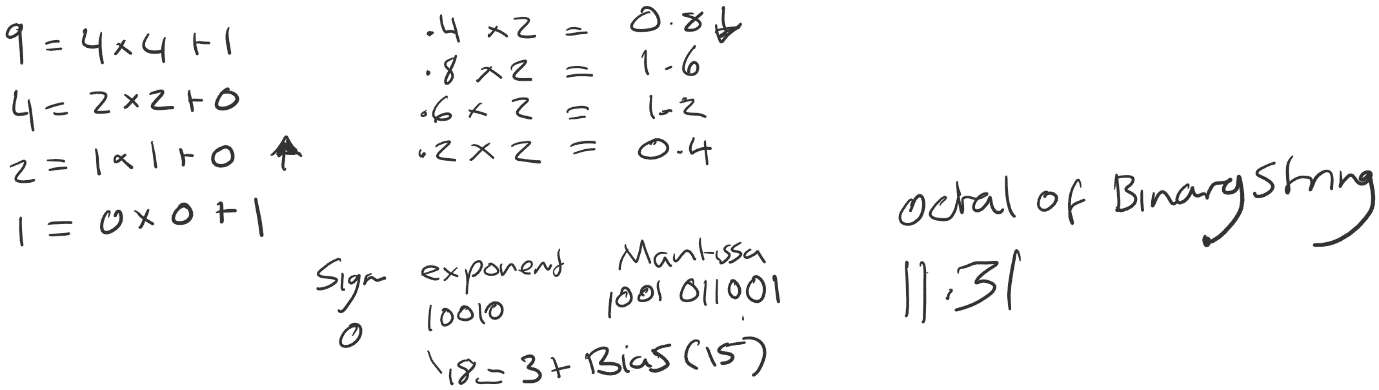 9 = 4 x 4 + 1
4 = 2 x 2 + 0
2 = 1 x 1 + 0 ↑
1 = 0 x 0 + 1
.4 x 2 = 0.8 ↓
.8 x 2 = 1.6
.6 x 2 = 1.2
.2 x 2 = 0.4
Sign exponent Mantissa
0 10010 1001 011001
18 = 3 + Bias (15)
octal of Binary String
11.31